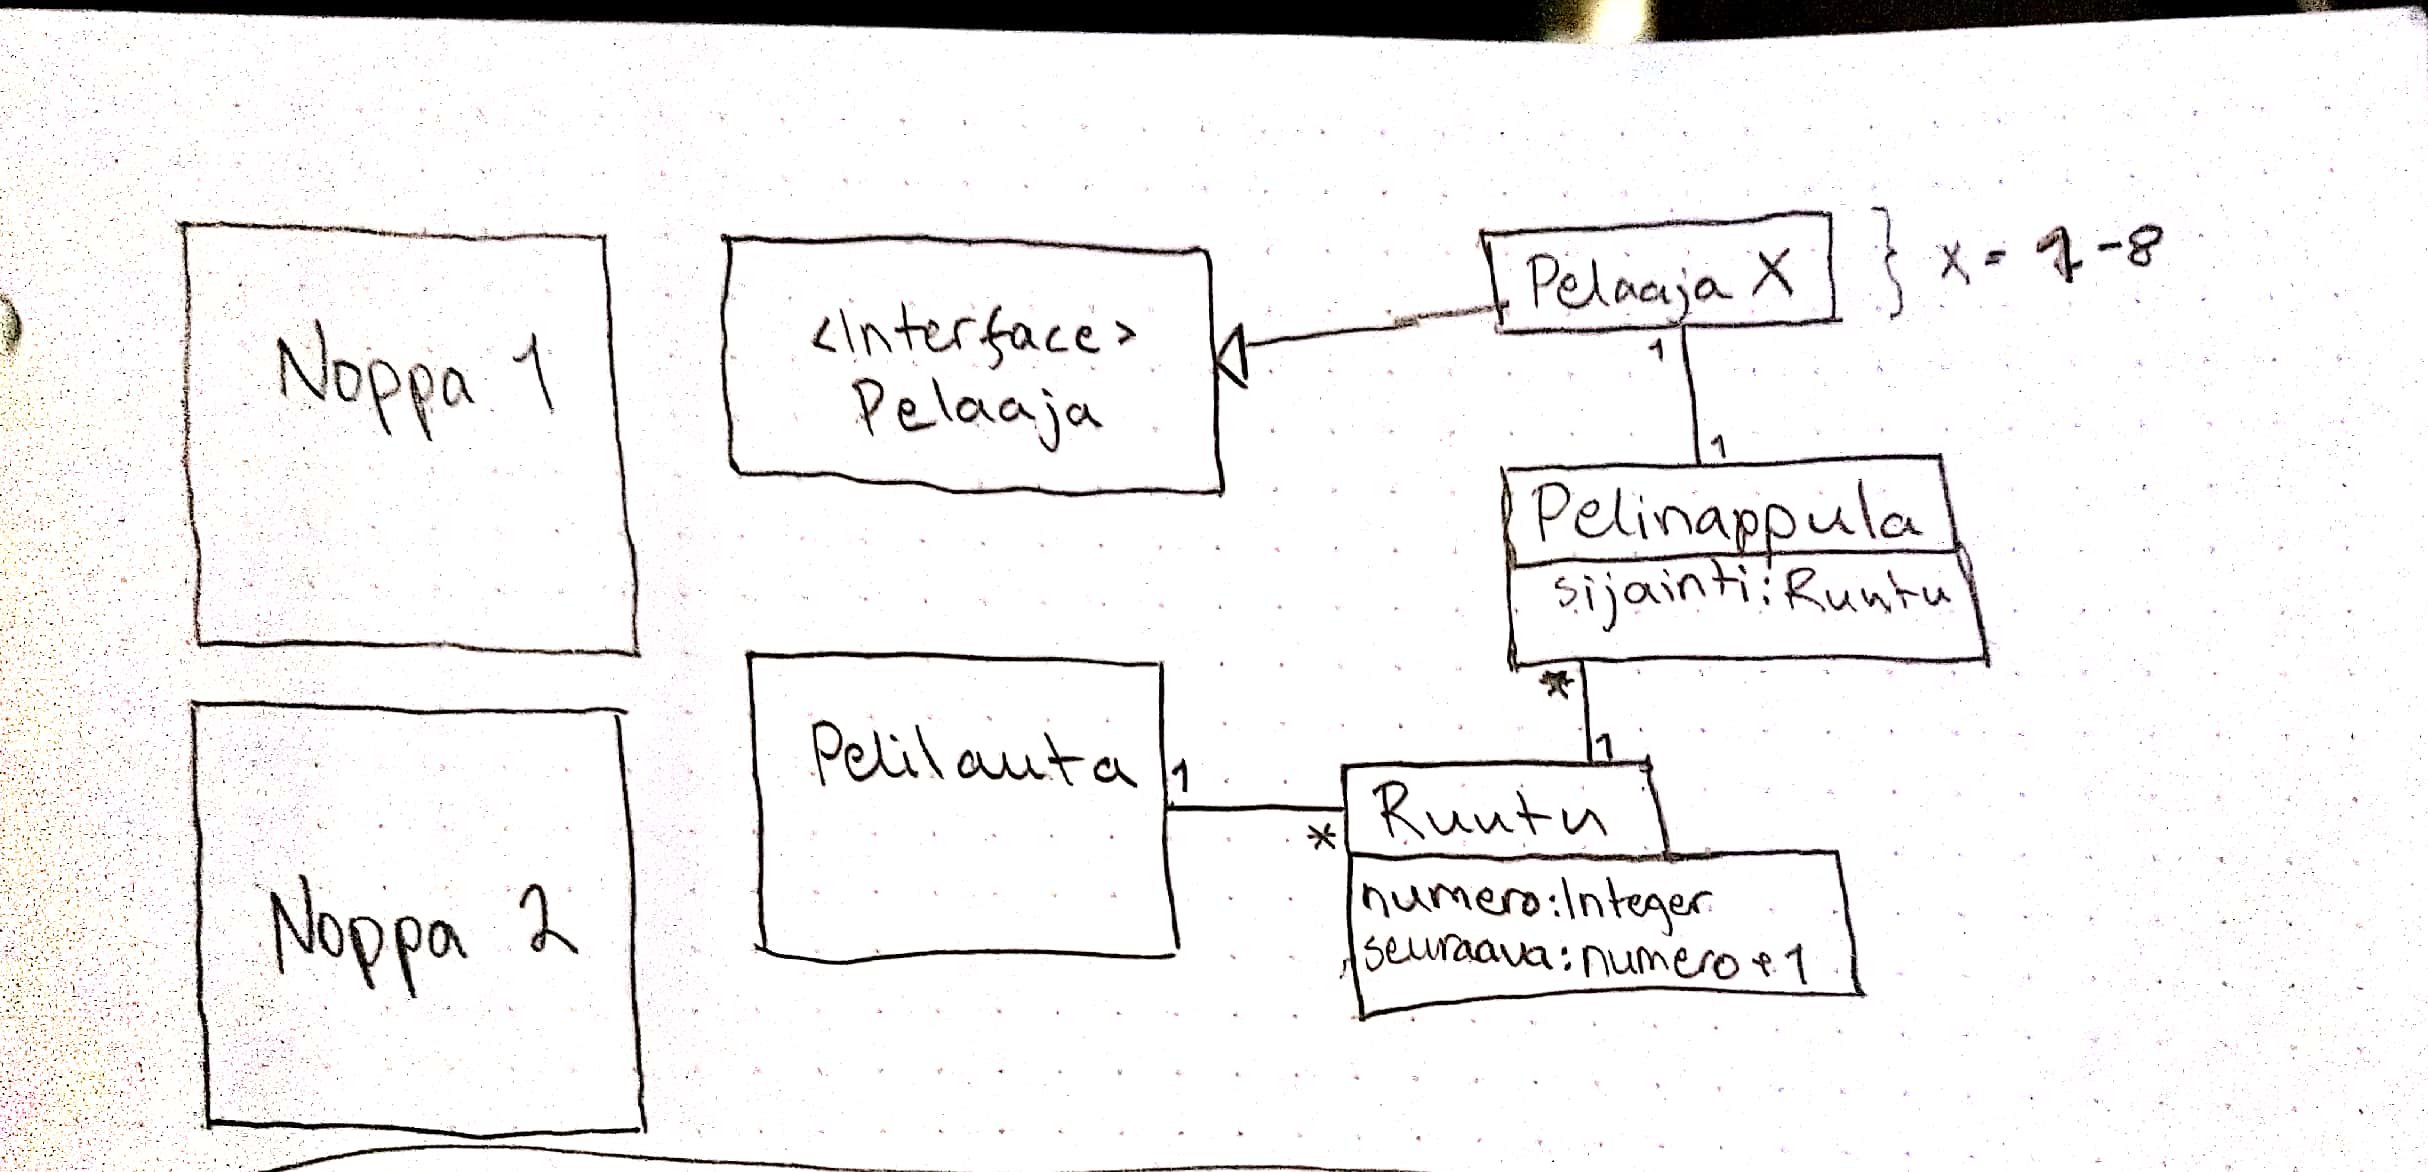 Noppa 1
<Interface>
Pelaaja
Pelaaja X
} X = 1-8
1
1
Pelinappula
sijainti: Ruutu
*
1
Pelilauta
1
*
Ruutu
numero: Integer
seuraava: numero+1
Noppa 2